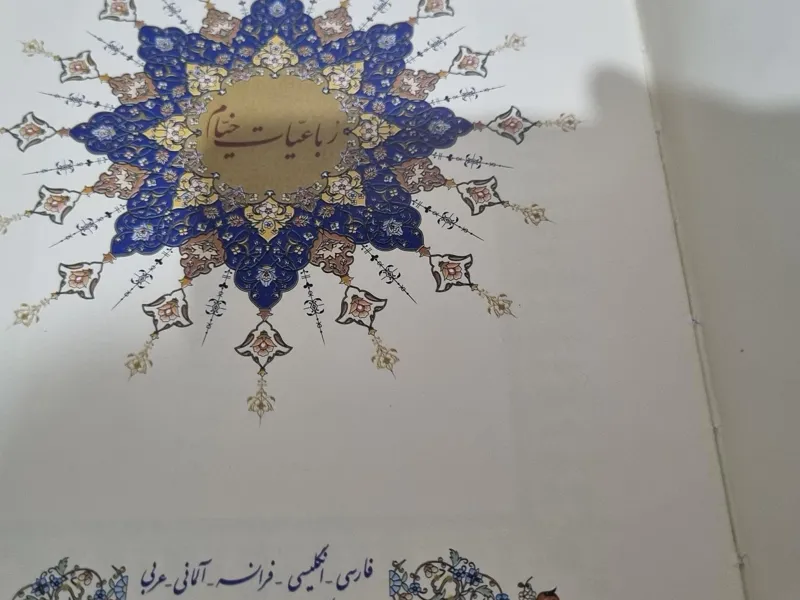 رباعیّات خیّام
فارسی - انگلیسی - فرانسه - آلمانی - عربی